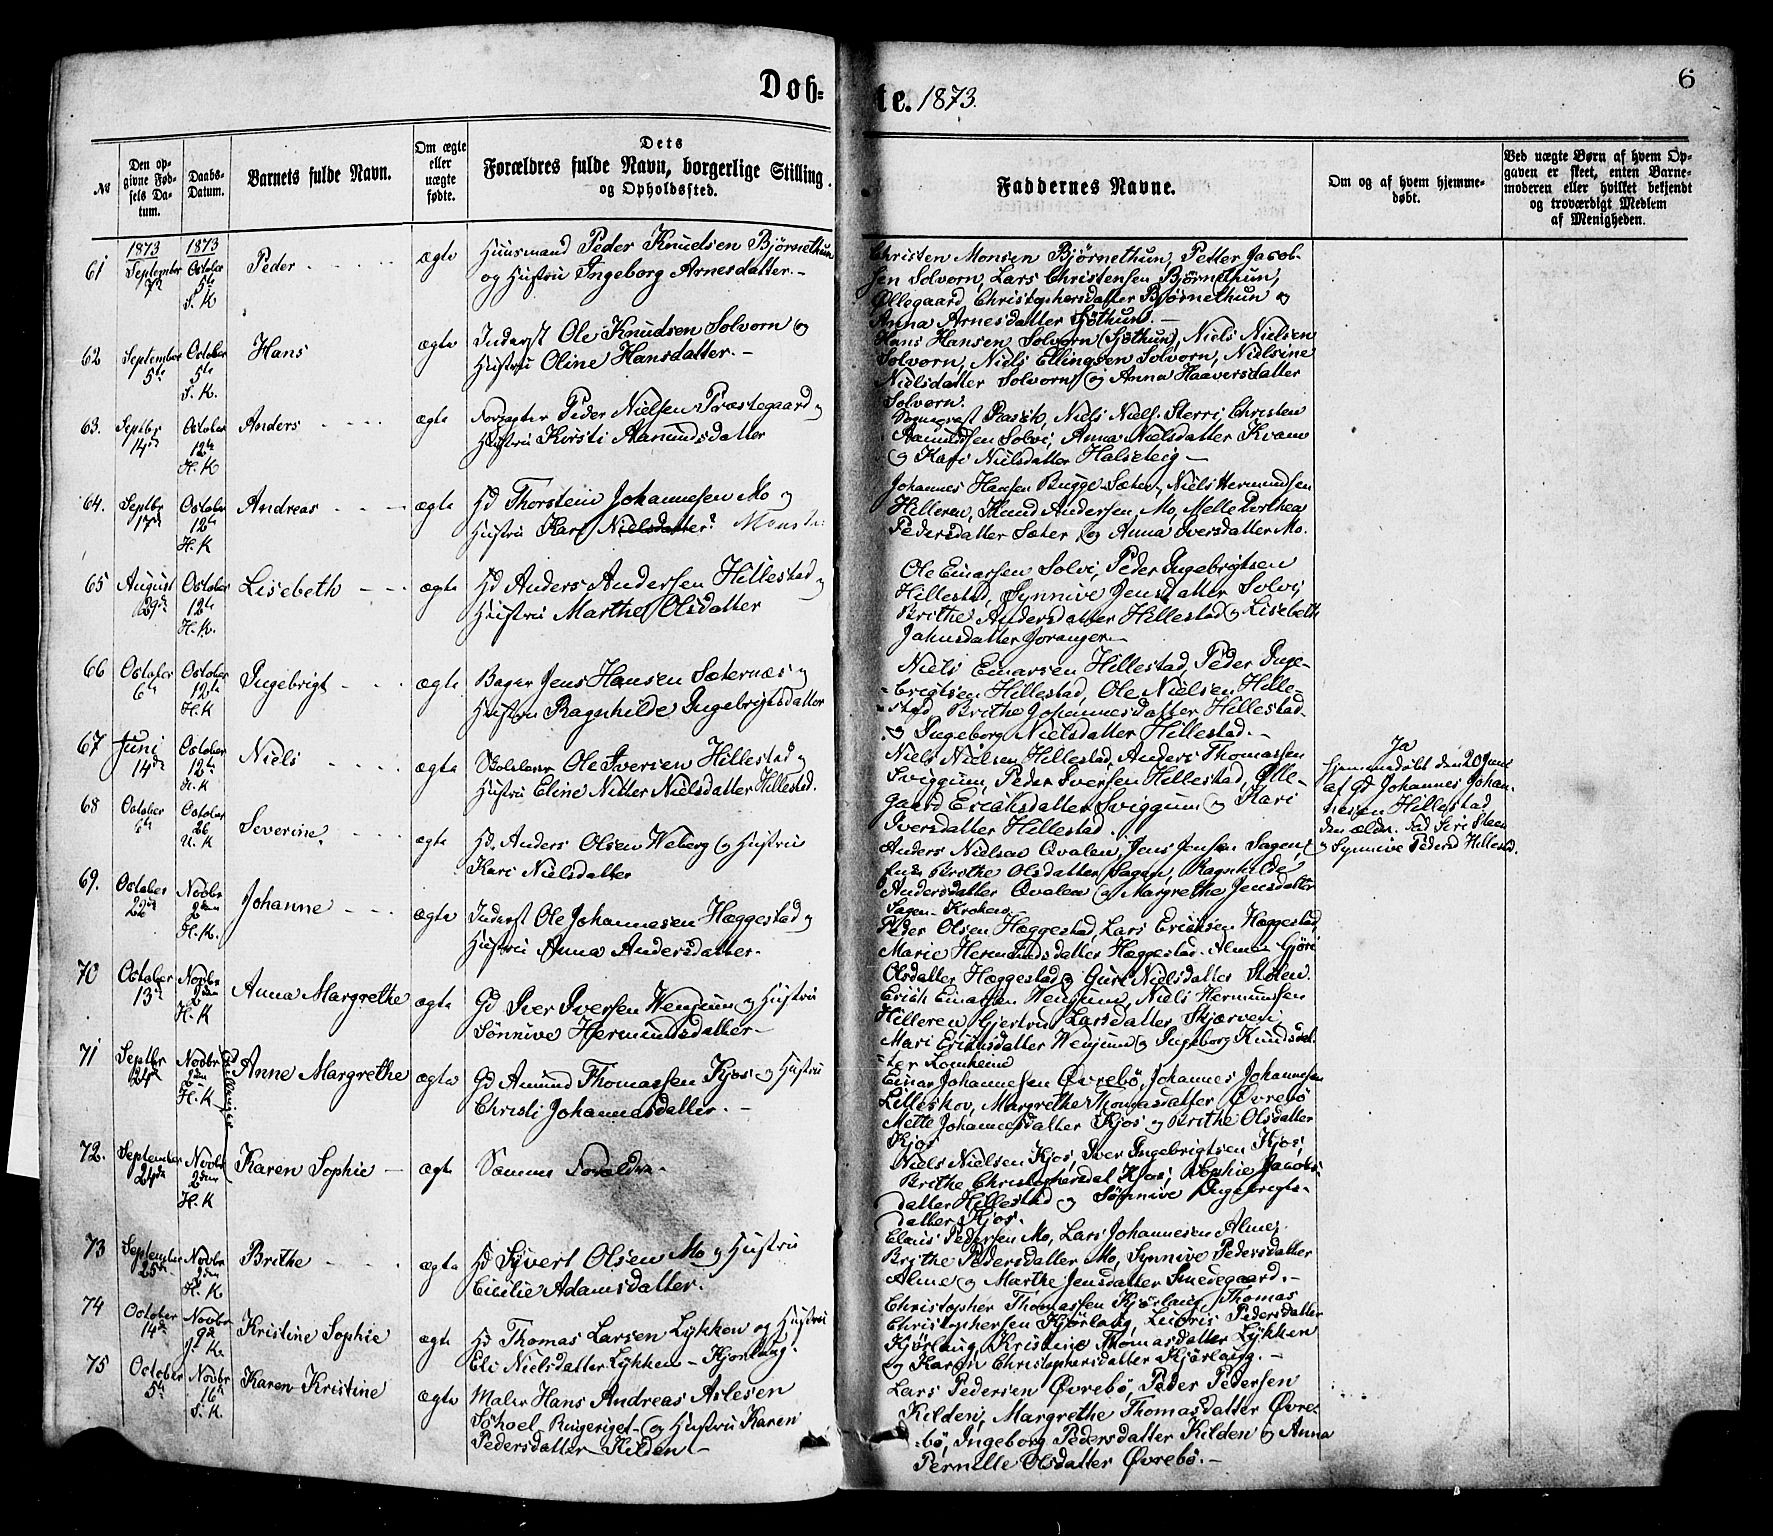 Døb=
te. 1873.
6
№
Den op-
givne Fød-
sels Da-
tum.
Daabs-
Datum.
Barnets fulde Navn.
Om ægte
eller
uægte
fødte.
Dets
Forældres fulde Navn, borgerlige Stilling
og Opholdssted.
Faddernes Navne.
Om og af hvem hjemme-
døbt.
Ved uægte Børn af hvem Op-
gaven er skeet, enten Barne-
moderen eller hvilket bekjendt
og troværdigt Medlem
af Menigheden.
1873
1873
61 September October Peder ægte Huusmand Peder Knudsen Bjørnethun
5te S. K og Hustru Ingeborg Arnesdatter.-
Christen Monsen Bjørnethun, Petter Jacob-
sen Solvorn, Lars Christensen Bjørnethun,
Ollegaard Christophersdatter Bjørnethun og
Anna Arnesdatter Sjøthun.
62 September October Hans ægte Inderst Ole Knudsen Solvorn og
5te 5te S. K. Hustru Oline Hansdatter.-
Hans Hansen Solvorn (Sjøthun), Niels Nielsen
Solvorn, Niels Ellingsen Solvorn, Nielsine
Nielsdatter Solvorn og Anna Haaversdatter
Solvorn.
63. Septbr October Anders ægte Forpagter Peder Nielsen Præstegaard og
14de 12te H. K Hustru Kirsti Aamundsdatter
Sogneprest Niels Niels. Sterri Christen
Aamundsen Solvi, Anna Nielsdatter Kvam
og Kari Nielsdatter Halsteig
64. Septbr October Andreas ægte Gd Thorstein Johannesen Mo og
17de 12te H. K Hustru Kari Nielsdatter? Monsda:
Johannes Hansen Bugge-Sæter, Niels Hermundsen
Hilleren, Knud Andersen Mo, Mette Perthea
Pedersdatter Sæter og Anna Iversdatter Mo.
65 August October Lisebeth ægte Hd Anders Andersen Hillestad og
29de 12te H. K. Hustru Marthe Olsdatter
Ole Einarsen Solvi, Peder Ingebrigtsen
Hillestad, Synnive Jensdatter Solvi,
Brithe Andersdatter Hillestad og Lisebeth
Jahnsdatter Joranger.-
66 October October Ingebrigt ægte Bager Jens Hansen Sæternæs og
6te 12te H. K Hustru Ragnhilde Ingebrigtsdatter
Niels Einarsen Hillestad, Peder Inge-
brigtsen Hillestad, Ole Nielsen Hille-
stad, Brithe Johannesdatter Hillestad
og Ingeborg Nielsdatter Hillestad.-
67 Juni October Niels ægte Skolelærer Ole Iversen Hillestad og
14de 12te H. K Hustru Eline Nitter Nielsdatter Hillestad.
Niels Nielsen Hillestad, Anders Thomassen
Sviggum, Peder Iversen Hillestad, Olle-
gaard Eriksdatter Sviggum og Kari
Iversdatter Hillestad.
Ja
Hjemmedøbt den 20 Juni
af Gd Johannes Johan-
nesen Hillestad
Siri Steen
og Synnive Pedersd Hillestad.
68 October October Severine ægte Hd. Anders Olsen Weberg og Hustru
6te 26 U. K Kari Nielsdatter
Anders Nielsen Qvalen, Jens Jensen Sagen,
Brithe Olsdatter Sagen, Ragnhilde
Andersdatter Qvalen og Margrethe Jensdatter
Sagen-Kroken
69. October Novbr Johanne ægte Inderst Ole Johannesen Hæggestad og
2den H. K. Hustru Anna Andersdatter.
Peder Olsen Hæggestad, Lars Eriksen Hæggestad
Marie Hermundsdatter Hæggestad-Alme Gjøri
Olsdatter Hæggestad og Guri Nielsdatter Stolen.
70 October Novbr Anna Margrethe ægte Gd Iver Iversen Wenjum og Hustru
13de 2den H. K Sønnive Hermundsdatter
Erich Einarsen Wenjum, Niels Hermunsen
Hilleren Gjertru Larsdatter Skjerven
Mari Eriksdatter Wenjum og Ingeborg Knudsdat-
ter Lomheim
71 Septbr Novbr Tvillinger Anne Margrethe ægte Gd Amund Thomassen Kjos og Hustru
24de 2den H. K Christi Johannesdatter.-
Einar Johannesen Øvrebø, Johannes Johannesen
Lilleskov, Margrethe Thomasdatter Øvrebø
Mette Johannesdatter Kjos og Brithe Olsdatter
Kjos
72. September Novbr Karen Sophie ægte Samme Forældre.
24de 2den H. K
Niels Nielsen Kjos, Iver Ingebrigtsen Kjos,
Brithe Christophersdat Kjos, Sophie Jacobs-
datter Hillestad og Sønnive Ingebrigts-
datter Kjos.
73 September Novbr Brithe ægte Hd Syvert Olsen Mo og Hustru
25de 2den H. K Cicilie Adamsdatter.
Claus Pedersen Mo, Lars Johannesen Alme,
Brithe Pedersdatter Mo, Synnive Pedersdatter
Alme og Marthe Jensdatter Smedegaard.-
74 October Novbr Kristine Sophie ægte Hd Thomas Larsen Lykken og Hustru
14de 9de Eli Nielsdatter Lykken - Kjørlaug.
Christopher Thomassen Kjørlaug, Thomas
Christophersen Kjørlaug, Lucris Pedersdatter
Kjørlaug, Kristine Thomasdatter Lykken
og Karen Christophersdatter Kjørlaug.-
75 October Novbr Karen Kristine ægte Maler Hans Andreas Aslesen
5te 16de S. K. Schoel Ringeriget og Hustru Karen
Pedersdatter Kilden
Lars Pedersen Øvrebø, Peder Pedersen
Kilden, Margrethe Thomasdatter Øvre-
bø, Ingeborg Pedersdatter Kilden og Anna
Pernille Olsdatter Øvrebø.-